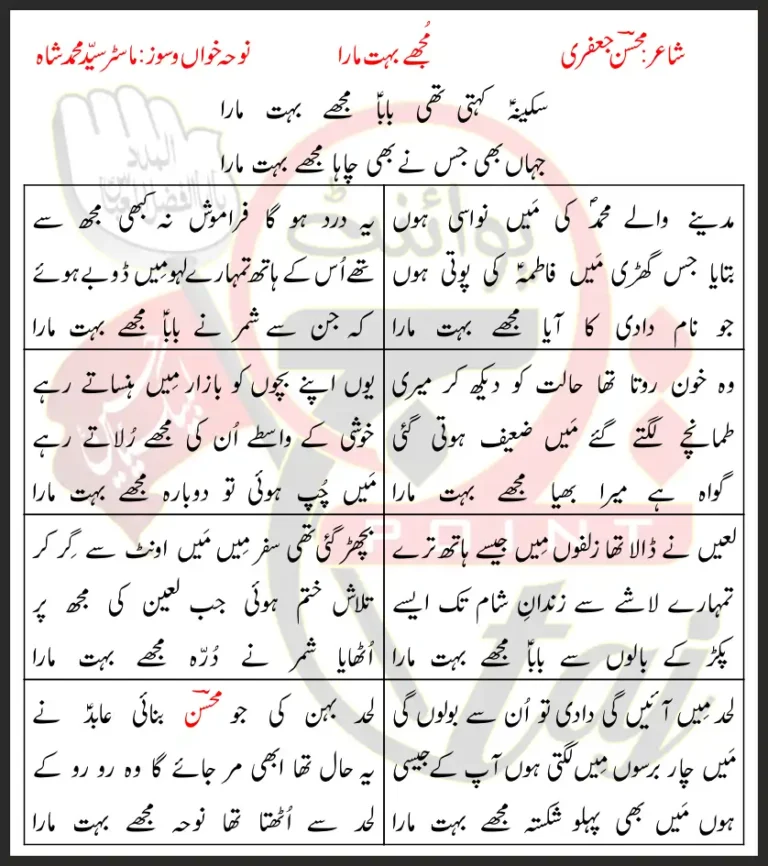 شاعر: محسنؔ جعفری
مُجھے بہت مارا
نوحہ خواں و سوز: ماسٹر سیّد محمد شاہ
سکینہؑ کہتی تھی باباؑ مجھے بہت مارا
جہاں بھی جس نے بھی چاہا مجھے بہت مارا
مدینے والے محمدؐ کی مَیں نواسی ہوں
بتایا جس گھڑی مَیں فاطمہؑ کی پوتی ہوں
جو نام دادی کا آیا مجھے بہت مارا
یہ درد ہو گا فراموش نہ کبھی مجھ سے
تھے اُس کے ہاتھ تمہارے لہو مِیں ڈوبے ہوئے
کہ جن سے شمر نے باباؑ مجھے بہت مارا
وہ خون روتا تھا حالت کو دیکھ کر میری
طمانچے لگتے گئے مَیں ضعیف ہوتی گئی
گواہ ہے میرا بھیا مجھے بہت مارا
یوں اپنے بچوں کو بازار مِیں ہنساتے رہے
خوشی کے واسطے اُن کی مجھے رُلاتے رہے
مَیں چُپ ہوئی تو دوبارہ مجھے بہت مارا
لعیں نے ڈالا تھا زلفوں مِیں جیسے ہاتھ ترے
تمہارے لاشے سے زندانِ شام تک ایسے
پکڑ کے بالوں سے باباؑ مجھے بہت مارا
بچھڑ گئی تھی سفر مِیں مَیں اونٹ سے گِر کر
تلاش ختم ہوئی جب لعین کی مجھ پر
اُٹھایا شمر نے دُرّہ مجھے بہت مارا
لحد مِیں آئیں گی دادی تو اُن سے بولوں گی
مَیں چار برسوں مِیں لگتی ہوں آپ کے جیسی
ہوں مَیں بھی پہلو شکستہ مجھے بہت مارا
لحد بہن کی جو محسنؔ بنائی عابدؑ نے
یہ حال تھا ابھی مر جائے گا وہ رو رو کے
لحد سے اُٹھتا تھا نوحہ مجھے بہت مارا
پوائنٹ
POINT
taj